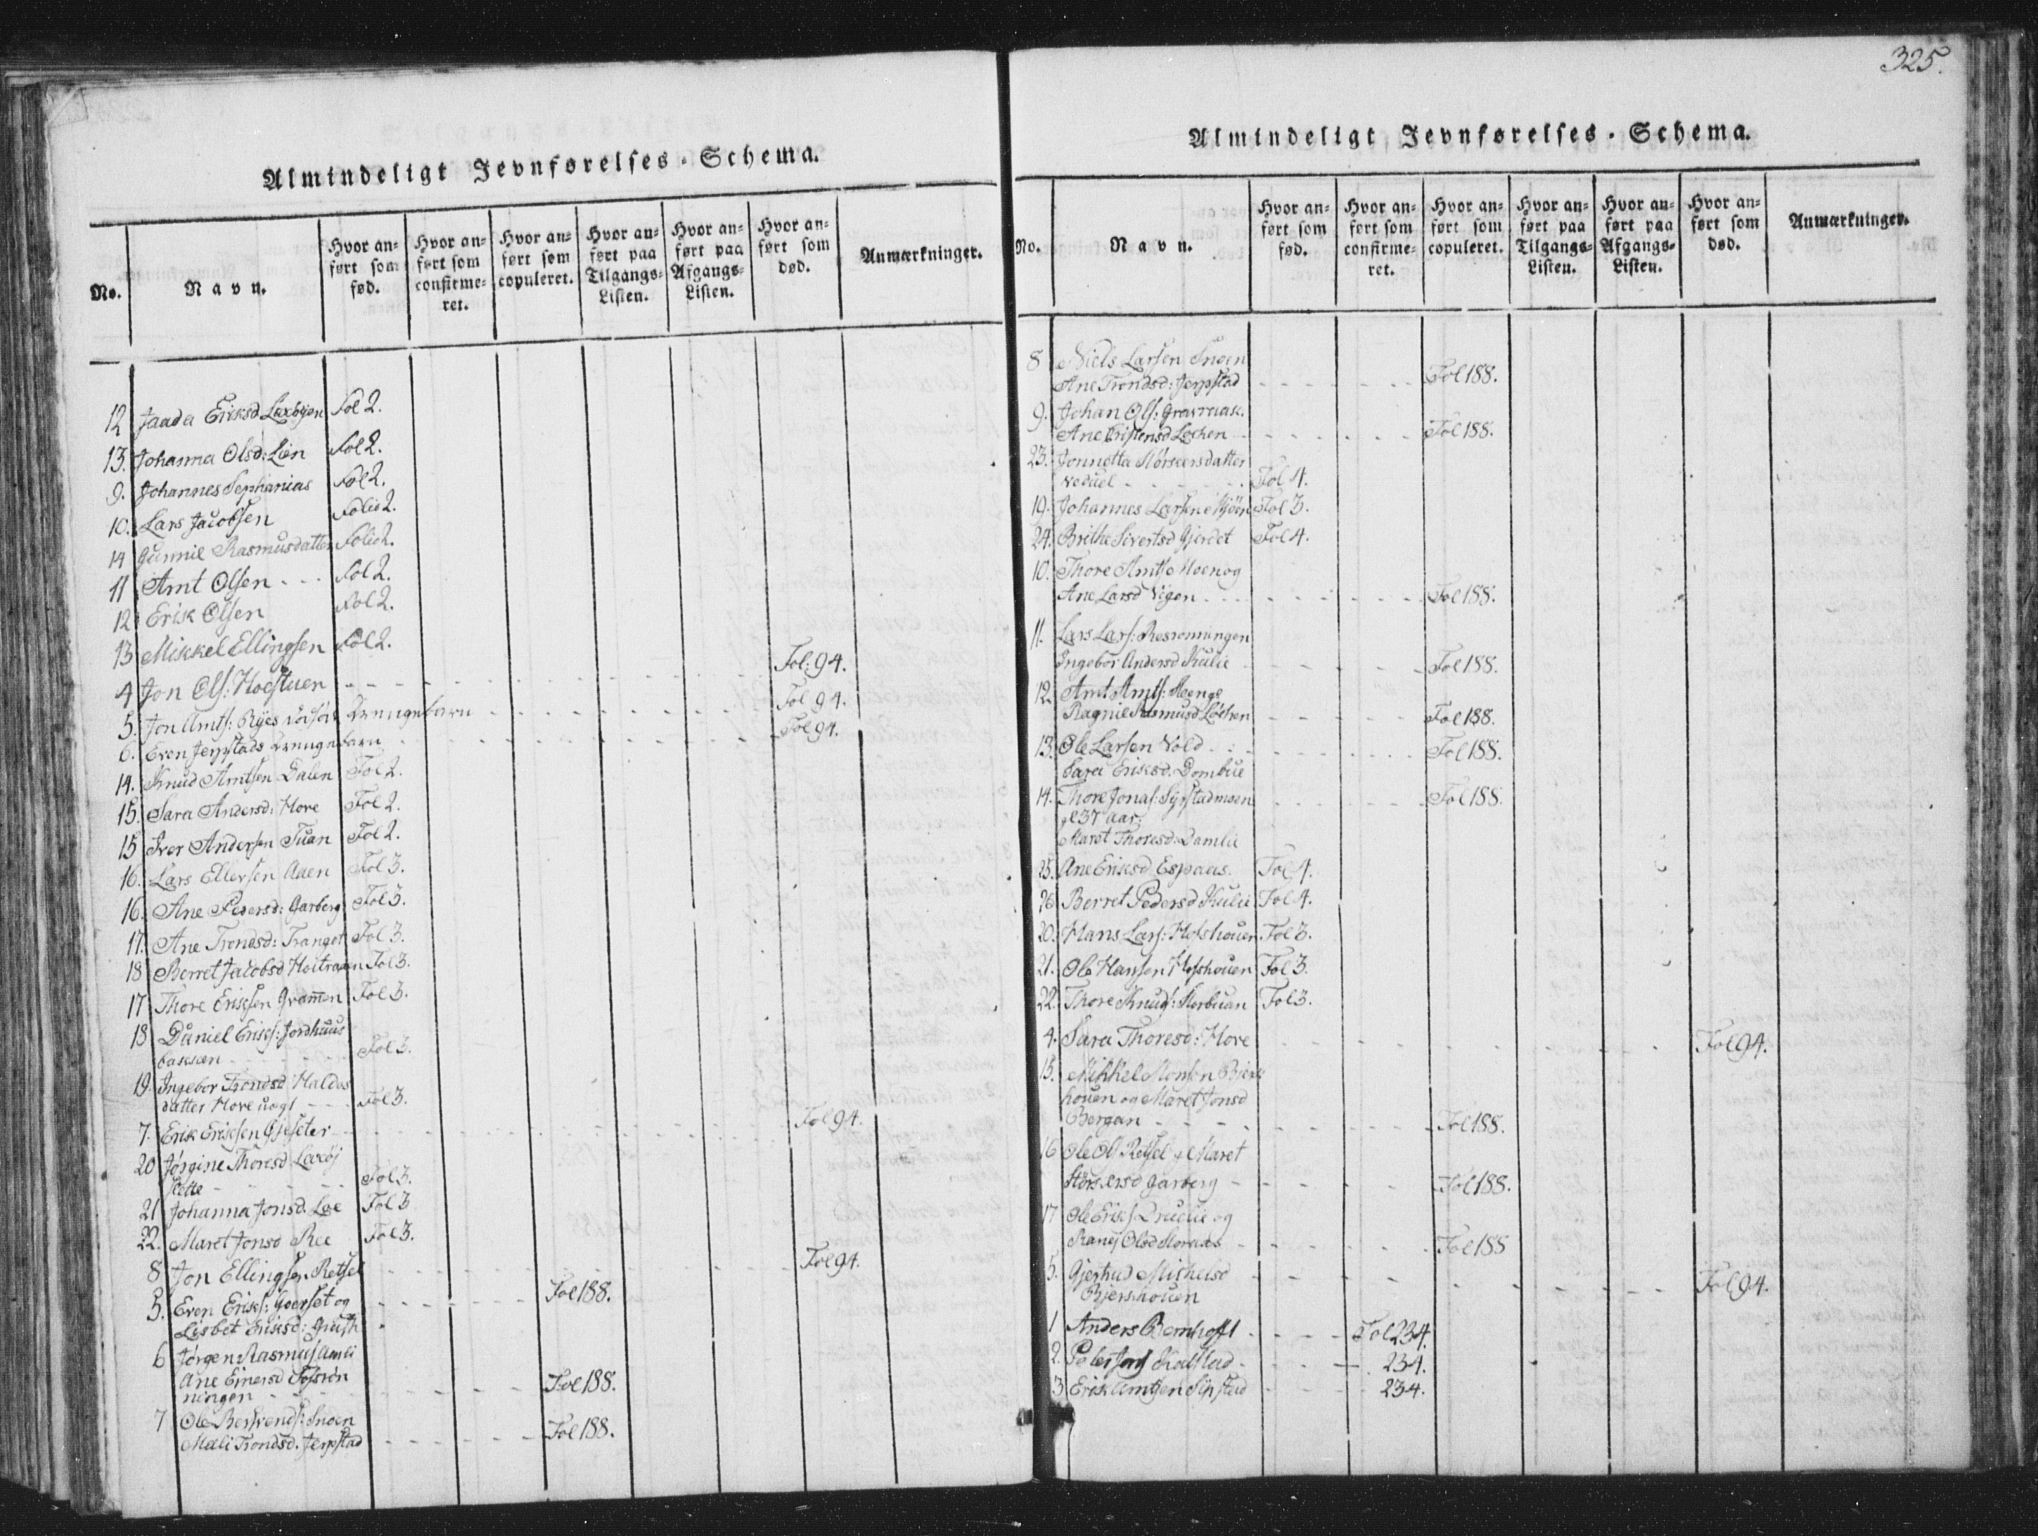 Almindeligt Jevnførelses-Schema.
No.
Navn.
Hvor anført som fød.
Hvor anført som confirmeret.
Hvor anført som copuleret.
Hvor anført paa Tilgangs-Listen.
Hvor anført paa Afgangs-Listen.
Hvor anført som død.
Anmærkninger.
12 Jaada Eriksd Fol 2.
13. Johanna Olsd: Lien Fol 2.
9. Johannes Sephanias Fol 2.
10. Lars Jacobsen Folio 2.
14 Gunnil Rasmusdatter Folio 2.
11 Arnt Olsen Fol 2.
12 Erik Olsen Fol 2.
13 Mikkel Ellingsen Fol 2.
4 Jon Ols: Hoestuen Fol: 94.
5. Jon Arnts: Ryes Drengebarn Fol 94.
6. Even Jerpstads Drengebarn Fol 94.
14. Knud Arntsen Dalen Fol 2.
15. Sara Andersd: Hove Fol 2.
15 Iver Andersen Tuan Fol 2.
16. Lars Ellevsen Aaen Fol 3.
16. Ane Pedersd: Garberg Fol 3.
17. Ane Trondsd: Tranget Fol 3.
18 Berret Jacobsd Hoitraaen Fol 3.
17 Thore Eriksen Gramen Fol 3.
18 Daniel Eriks: Jordhuus
baksæn Fol 3.
19. Ingebor Trondsd Haldos
datter Hove Fol 3.
7. Erik Eriksen Gjeseter Fol 94.
20 Jørgine Thoresd
slette Fol 3.
21 Johanna Jonsd. Lee Fol 3
22. Maret Jonsd Ree Fol 3.
8 Jon Ellingsen Retsel Fol 94.
5. Even Eriks: og Fol 188.
Lisbet Eriksd:
6 Jørgen Rasmus
Ane Einersd
ningen Fol 188.
7 Ole Snoen
Mali Trondsd. Jerpstad Fol 188.
325.
Almindeligt Jevnførelses-Schema.
No.
Navn.
Hvor anført som fød.
Hvor anført som confirmeret.
Hvor anført som copuleret.
Hvor anført paa Tilgangs-Listen.
Hvor anført paa Afgangs-Listen.
Hvor anført som død.
Anmærkninger.
8 Niels Larsen Snoen
Ane Trondsd: Jerpstad Fol 188.
9. Johan Ols: Gravraak
Ane Løchen Fol 188.
23. Jonnetta
Fol 4.
19. Johannes Larsen Fol 3.
24. Brithe Sivertsd Gjerdet Fol 4.
10. Thore Arnts Moen og
Ane Larsd Vigen Fol 188.
11. Lars Lars:
Ingebor Andersd Kulie Fol 188.
12. Arnt Arnts:
Ragnil Rasmusd Løchen Fol 188.
13. Ole Larsen Vold Fol 188.
Sara Eriksd: Dombue
14. Thore Jonas: Syrstadmoen Fol 188.
37 aar,
Maret Thoresd: Damlie
25. Ane Eriksd Espaas. Fol 4.
26 Berret Pedersd Kulie Fol 4.
20. Hans Lars: Hofshouen Fol 3.
21. Ole Hansen Hofshouen Fol 3.
22. Thore Knuds: Fol 3.
4. Sara Thoresd: Hove Fol 94.
15. Mikkel Monsen Bjers
houen og Maret Jonsd
Bergan Fol 188.
16 Ole Ols Retsel & Maret
Garberg Fol 188.
17 Ole Eriks og
Ranej Olsd Fol 188
5. Gjertrud Mikkelsd Fol 94.
Bjershouen
1 Anders Bernhoft Fol 234.
2. Peder Jons Kalstad 234.
3 Erik Arntsen Sipstad 234.